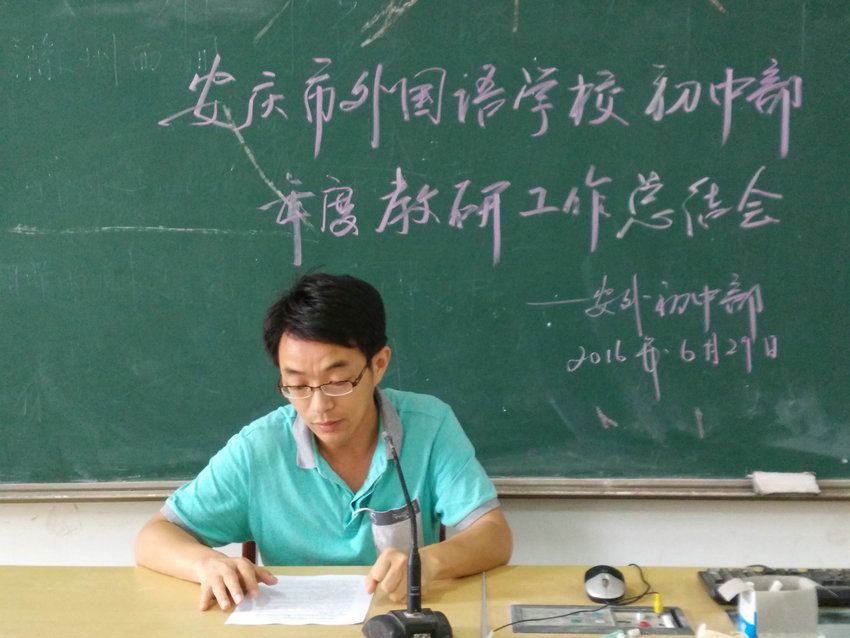 安庆市外国语学校初中部
年度教研工作总结会
——安外初中部
2016年.6月29日